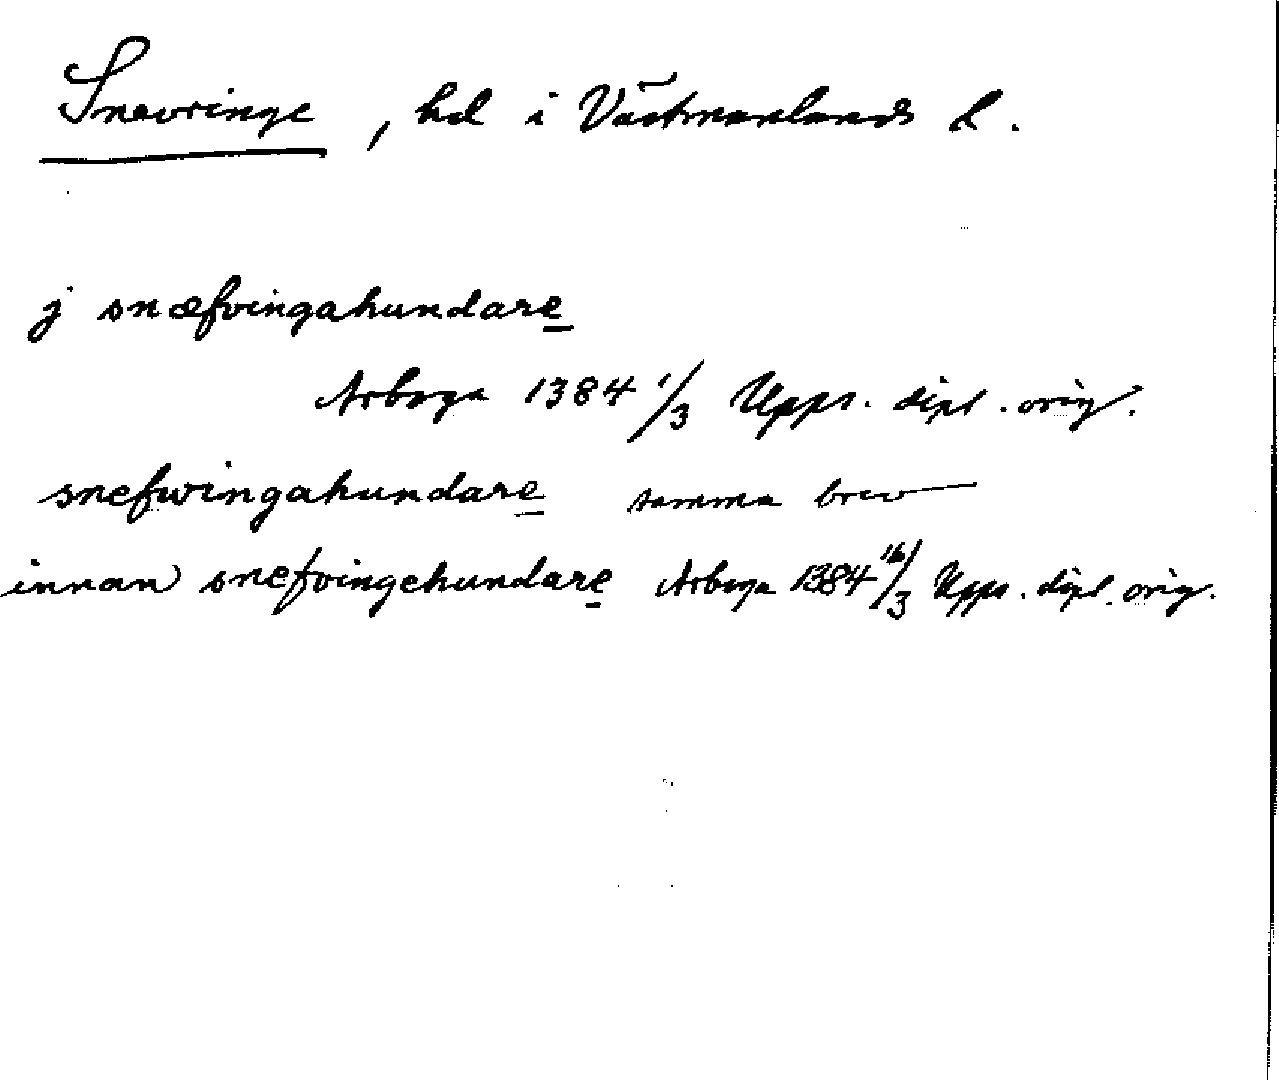 Snevringe, hd i Västmanlands l.
j snæfvingahundare
Arboga 1384 1/3 Upps. dipl. orig.
snefwingahundare samma brev
innan snefvingehundare Arboga 1384 16/3 Upps. dipl. orig.